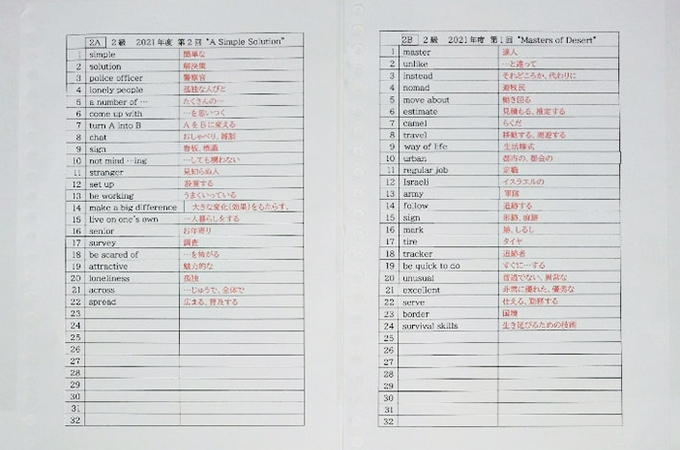 2A 2級 2021年度 第2回 "A Simple Solution"
1 simple 簡単な
2 solution 解決策
3 police officer 警察官
4 lonely people 孤独な人びと
5 a number of … たくさんの…
6 come up with …を思いつく
7 turn A into B AをBに変える
8 chat おしゃべり、雑談
9 sign 看板、標識
10 not mind …ing …しても構わない
11 stranger 見知らぬ人
12 set up 設置する
13 be working うまくいっている
14 make a big difference 大きな変化(効果)をもたらす。
15 live on one's own 一人暮らしをする
16 senior お年寄り
17 survey 調査
18 be scared of …を怖がる
19 attractive 魅力的な
20 loneliness 孤独
21 across …じゅうで、全体で
22 spread 広まる、普及する
23
24
25
26
27
28
29
30
31
32
2B 2級 2021年度 第1回 "Masters of Desert"
1 master 達人
2 unlike …と違って
3 instead それどころか、代わりに
4 nomad 遊牧民
5 move about 動き回る
6 estimate 見積もる、推定する
7 camel らくだ
8 travel 移動する、周遊する
9 way of life 生活様式
10 urban 都市の、都会の
11 regular job 定職
12 Israeli イスラエルの
13 army 軍隊
14 follow 追跡する
15 sign 形跡、痕跡
16 mark 跡、しるし
17 tire タイヤ
18 tracker 追跡者
19 be quick to do すぐに…する
20 unusual 普通でない、異常な
21 excellent 非常に優れた、優秀な
22 serve 仕える、勤務する
23 border 国境
24 survival skills 生き延びるための技術
25
26
27
28
29
30
31
32